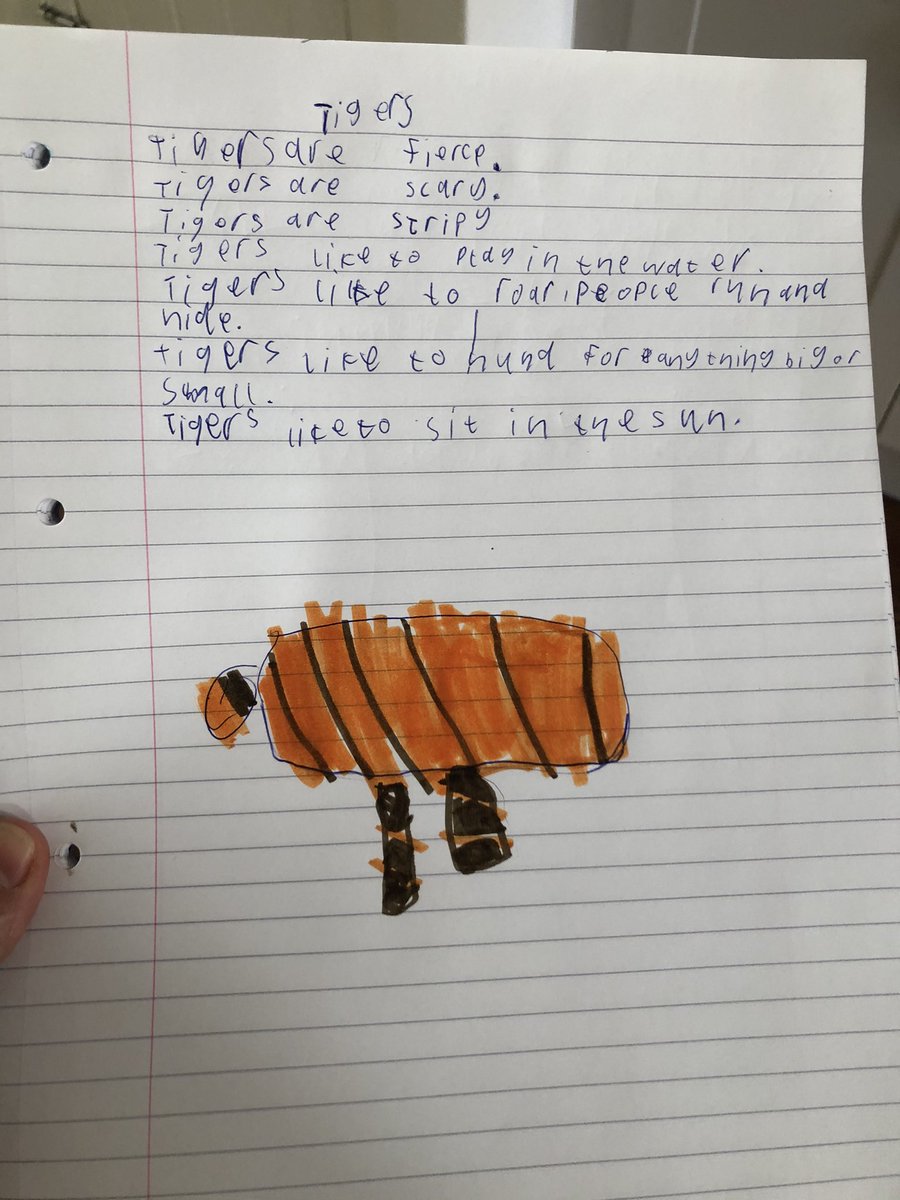 Tigers
Tigers are fierce.
Tigors are scary.
Tigors are stripy
Tigers like to play in the water.
Tigers like to roar, people run and
hide.
Tigers like to hund for anything big or
small.
Tigers like to sit in the sun.